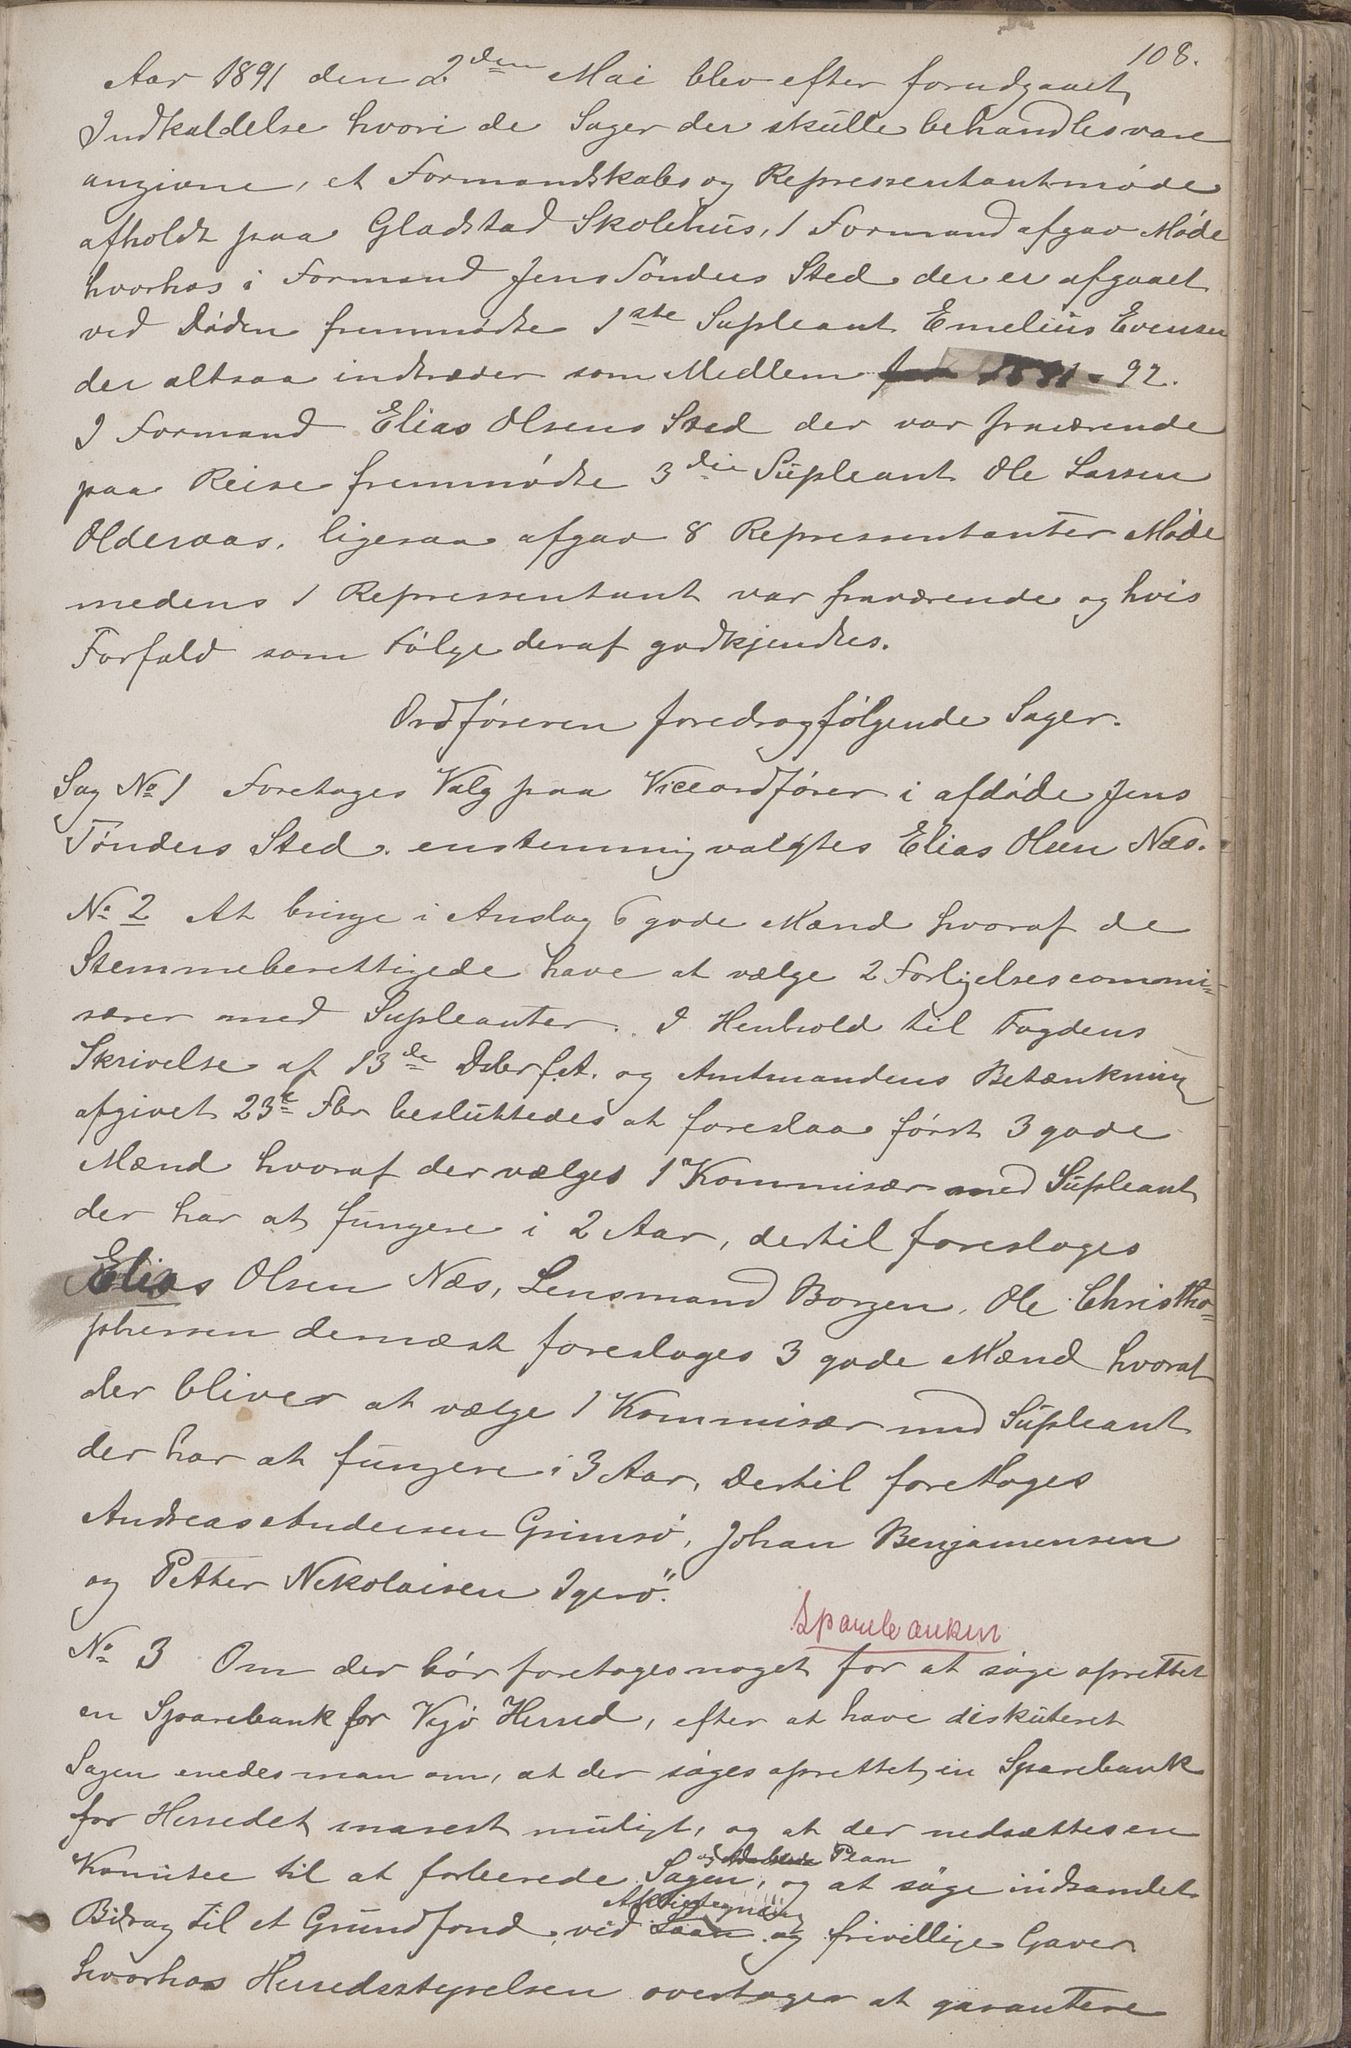 108.
Aar 1891 den 2den Mai blev efter forudgaaet
Indkaldelse hvori de Sager der skulle behandles vare
angivne, et Formandskabs og Repressentantmøde
afholdt paa Gladstad Skolehus, 1 Formand afgav Møde
hvorhos i Formand Jens Tønders Sted der er afgaaet
ved Døden fremmødte 1ste Supleant Emelius Evensen
der altsaa indtræder som Medlem for 1891-92.
I Formand Elias Olsens Sted der var fraværende
paa Reise fremmødte 3die Supleant Ole Larsen
Olderaas. ligesaa afgav 8 Repressentanter Møde
medens 1 Repressentant var fraværende og hvis
Forfald som Følge deraf godkjendtes.
Ordføreren foredrog følgende Sager.
Sag No 1 Foretoges Valg paa Viceordfører i afdøde Jens
Tønders Sted. enstemmig valgtes Elias Olsen Næs.
No 2 At bringe i Anslag 6 gode Mænd hvoraf de
Stemmeberettigede have at vælge 2 Forligelsescommi=
særer med Supleanter. I Henhold til Fogdens
Skrivelse af 13de Dsbr f.A. og Amtmandens Betænkning
afgivet 23de Fbr besluttedes at foreslaa først 3 gode
Mænd hvoraf der vælges 1 Kommisær med Supleant
der har at fungere i 2 Aar, dertil foresloges
Elias Olsen Næs, Lensmand Borgen, Ole Christho=
phersen dernæst foresloges 3 gode Mænd hvoraf
der bliver at vælge 1 Kommisær med Supleant
der har at fungere i 3 Aar, Dertil foretloges
Andreas Andersen Grimsø, Johan Benjamensen
og Petter Nekolaisen Igerø.
Sparebanken
No 3 Om der bør foretages noget for at søge oprettet
en Sparebank for Vegø Herred, efter at have diskuteret
Sagen enedes man om, at der søges oprettet en Sparebank
for Herredet snarest muligt, og at der nedsættes en
og Plan
Komitee til at forberede Sagen, og at søge indsamlet
Aktietegning
Bidrag til et Grundfond, ved Laan og frivillige Gaver
hvorhos Herredsstyrelsen overtager at garantere